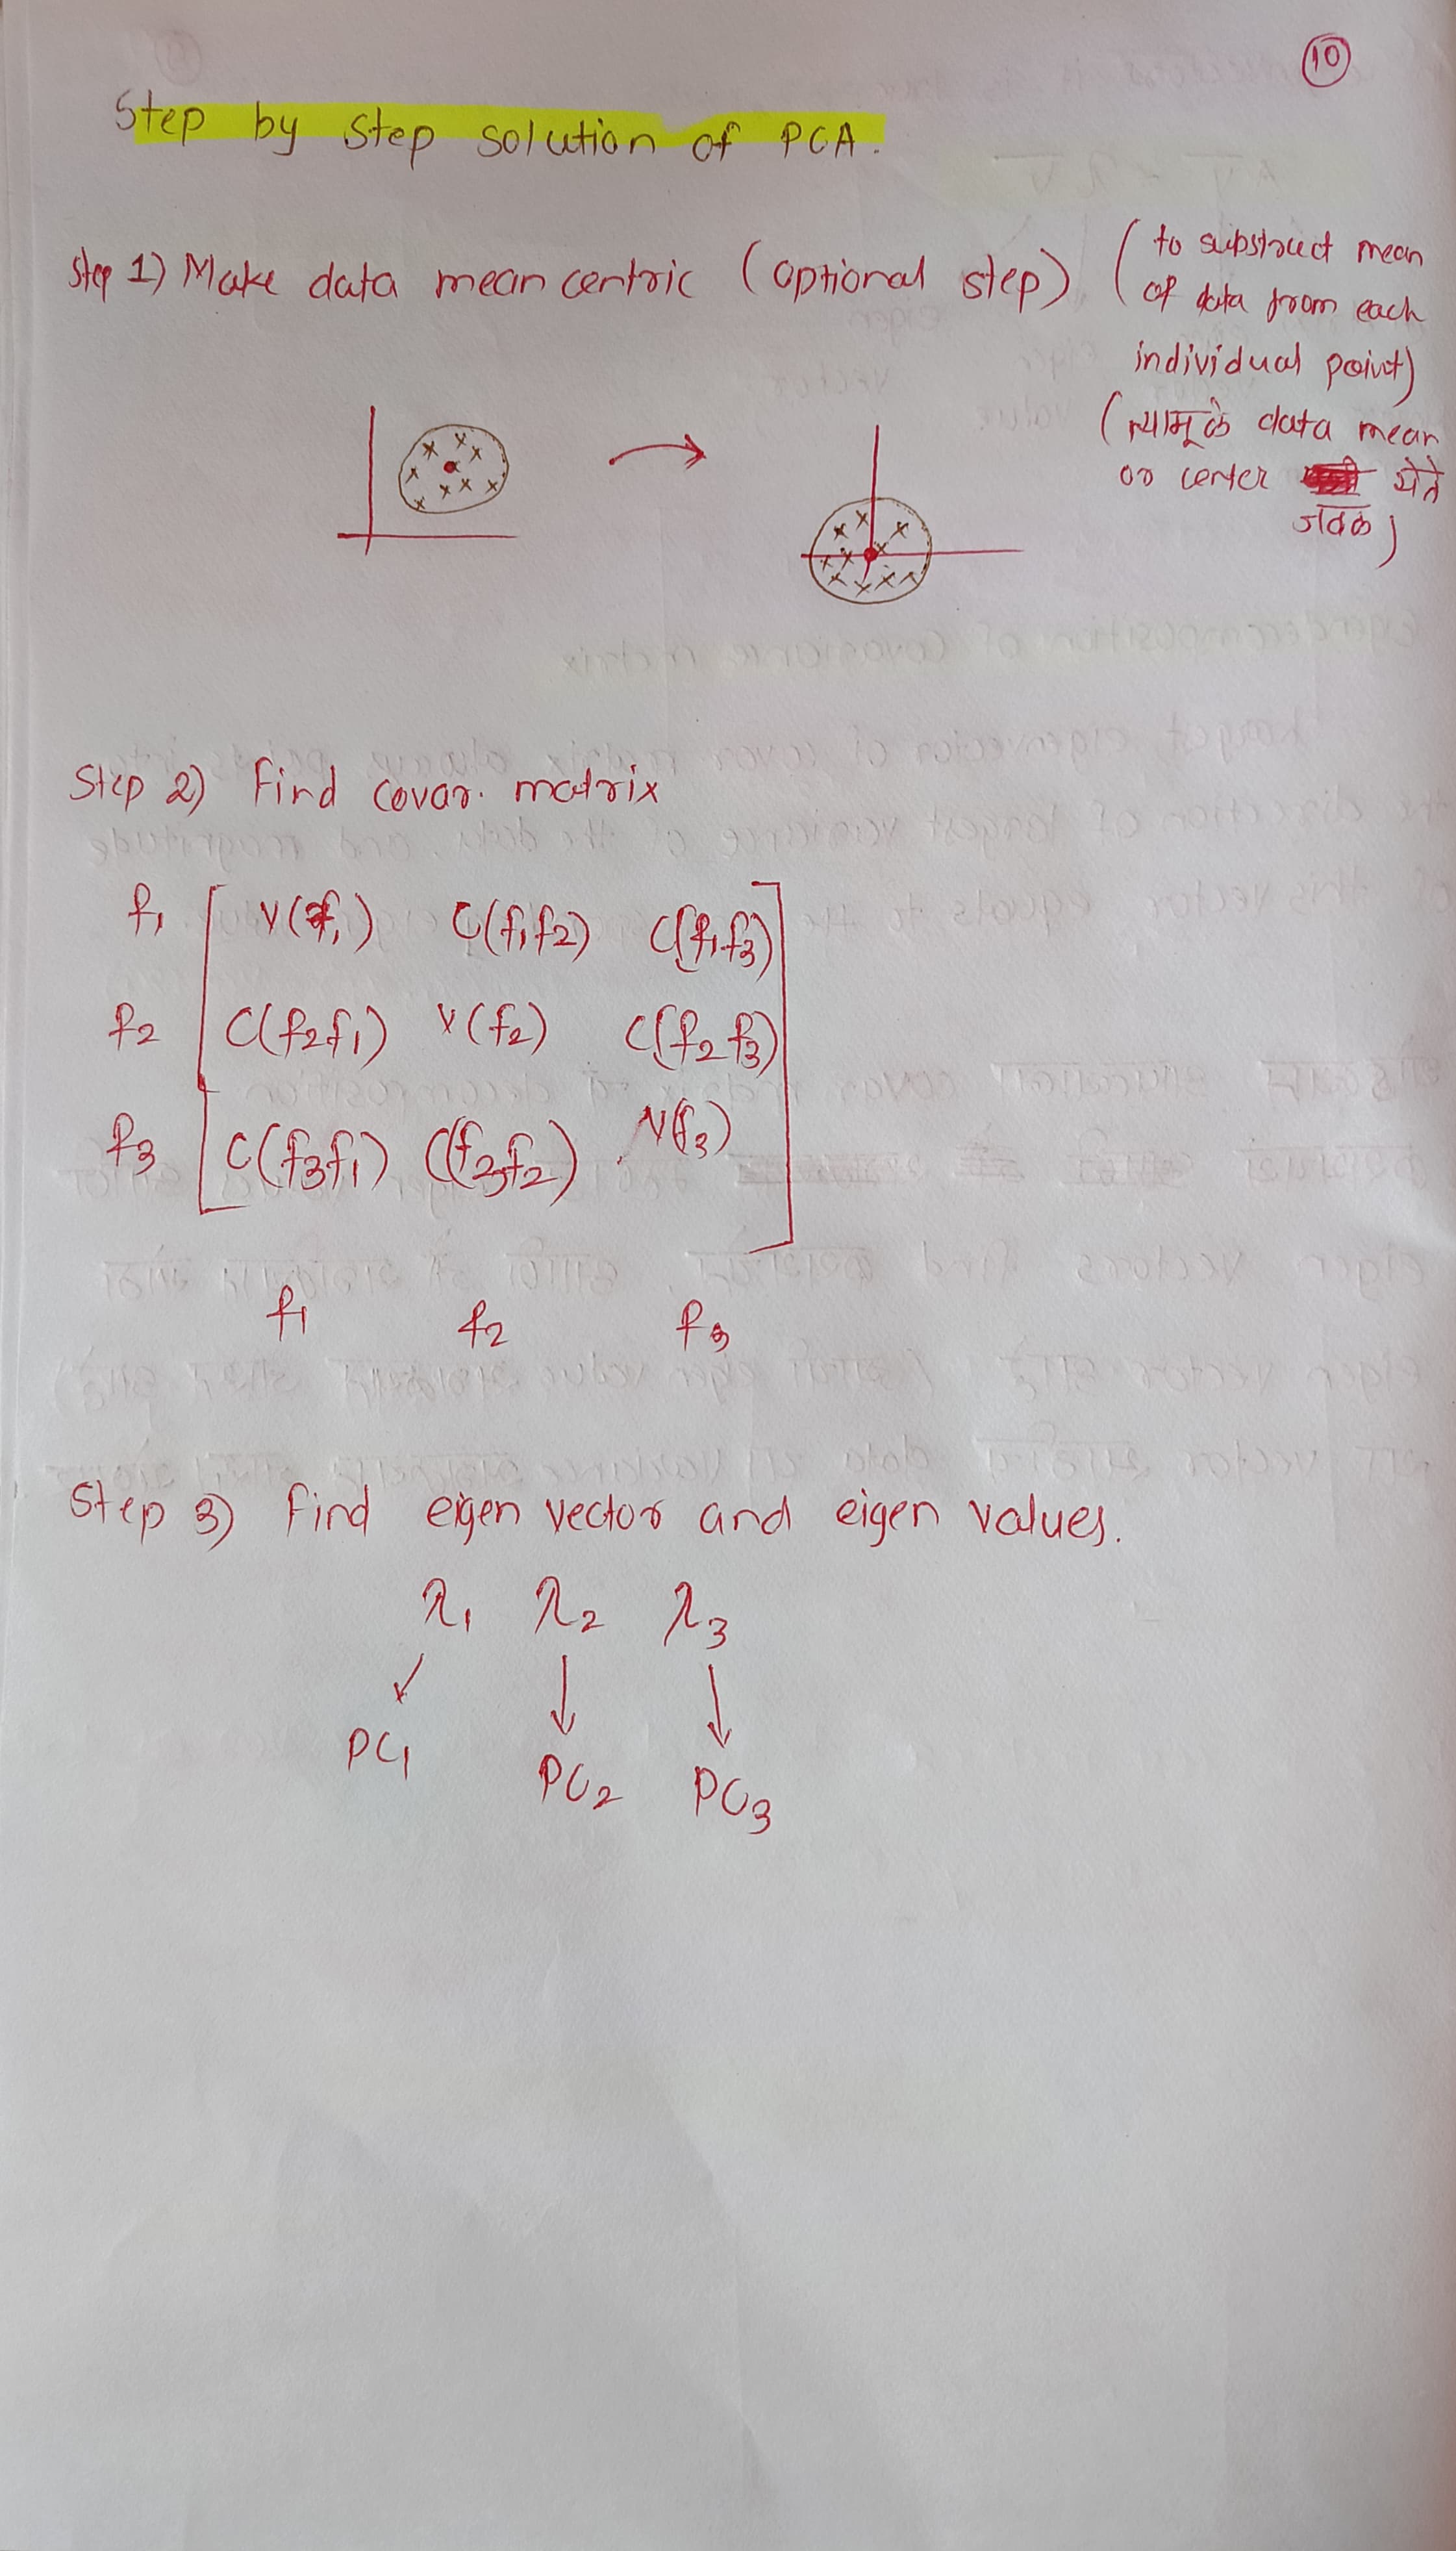 10
Step by step solution of PCA.
Step 1) Make data mean centric (optional step) (to substract mean
of data from each
individual point)
(त्यामुळे data mean
or center येते
जवळ)
Step 2) Find covar. matrix
f1 V(f1) C(f1f2) C(f1f3)
f2 C(f2f1) V(f2) C(f2f3)
f3 C(f3f1) C(f3f2) V(f3)
f1 f2 f3
Step 3) Find eigen vector and eigen values.
λ1 λ2 λ3
PC1 PC2 PC3